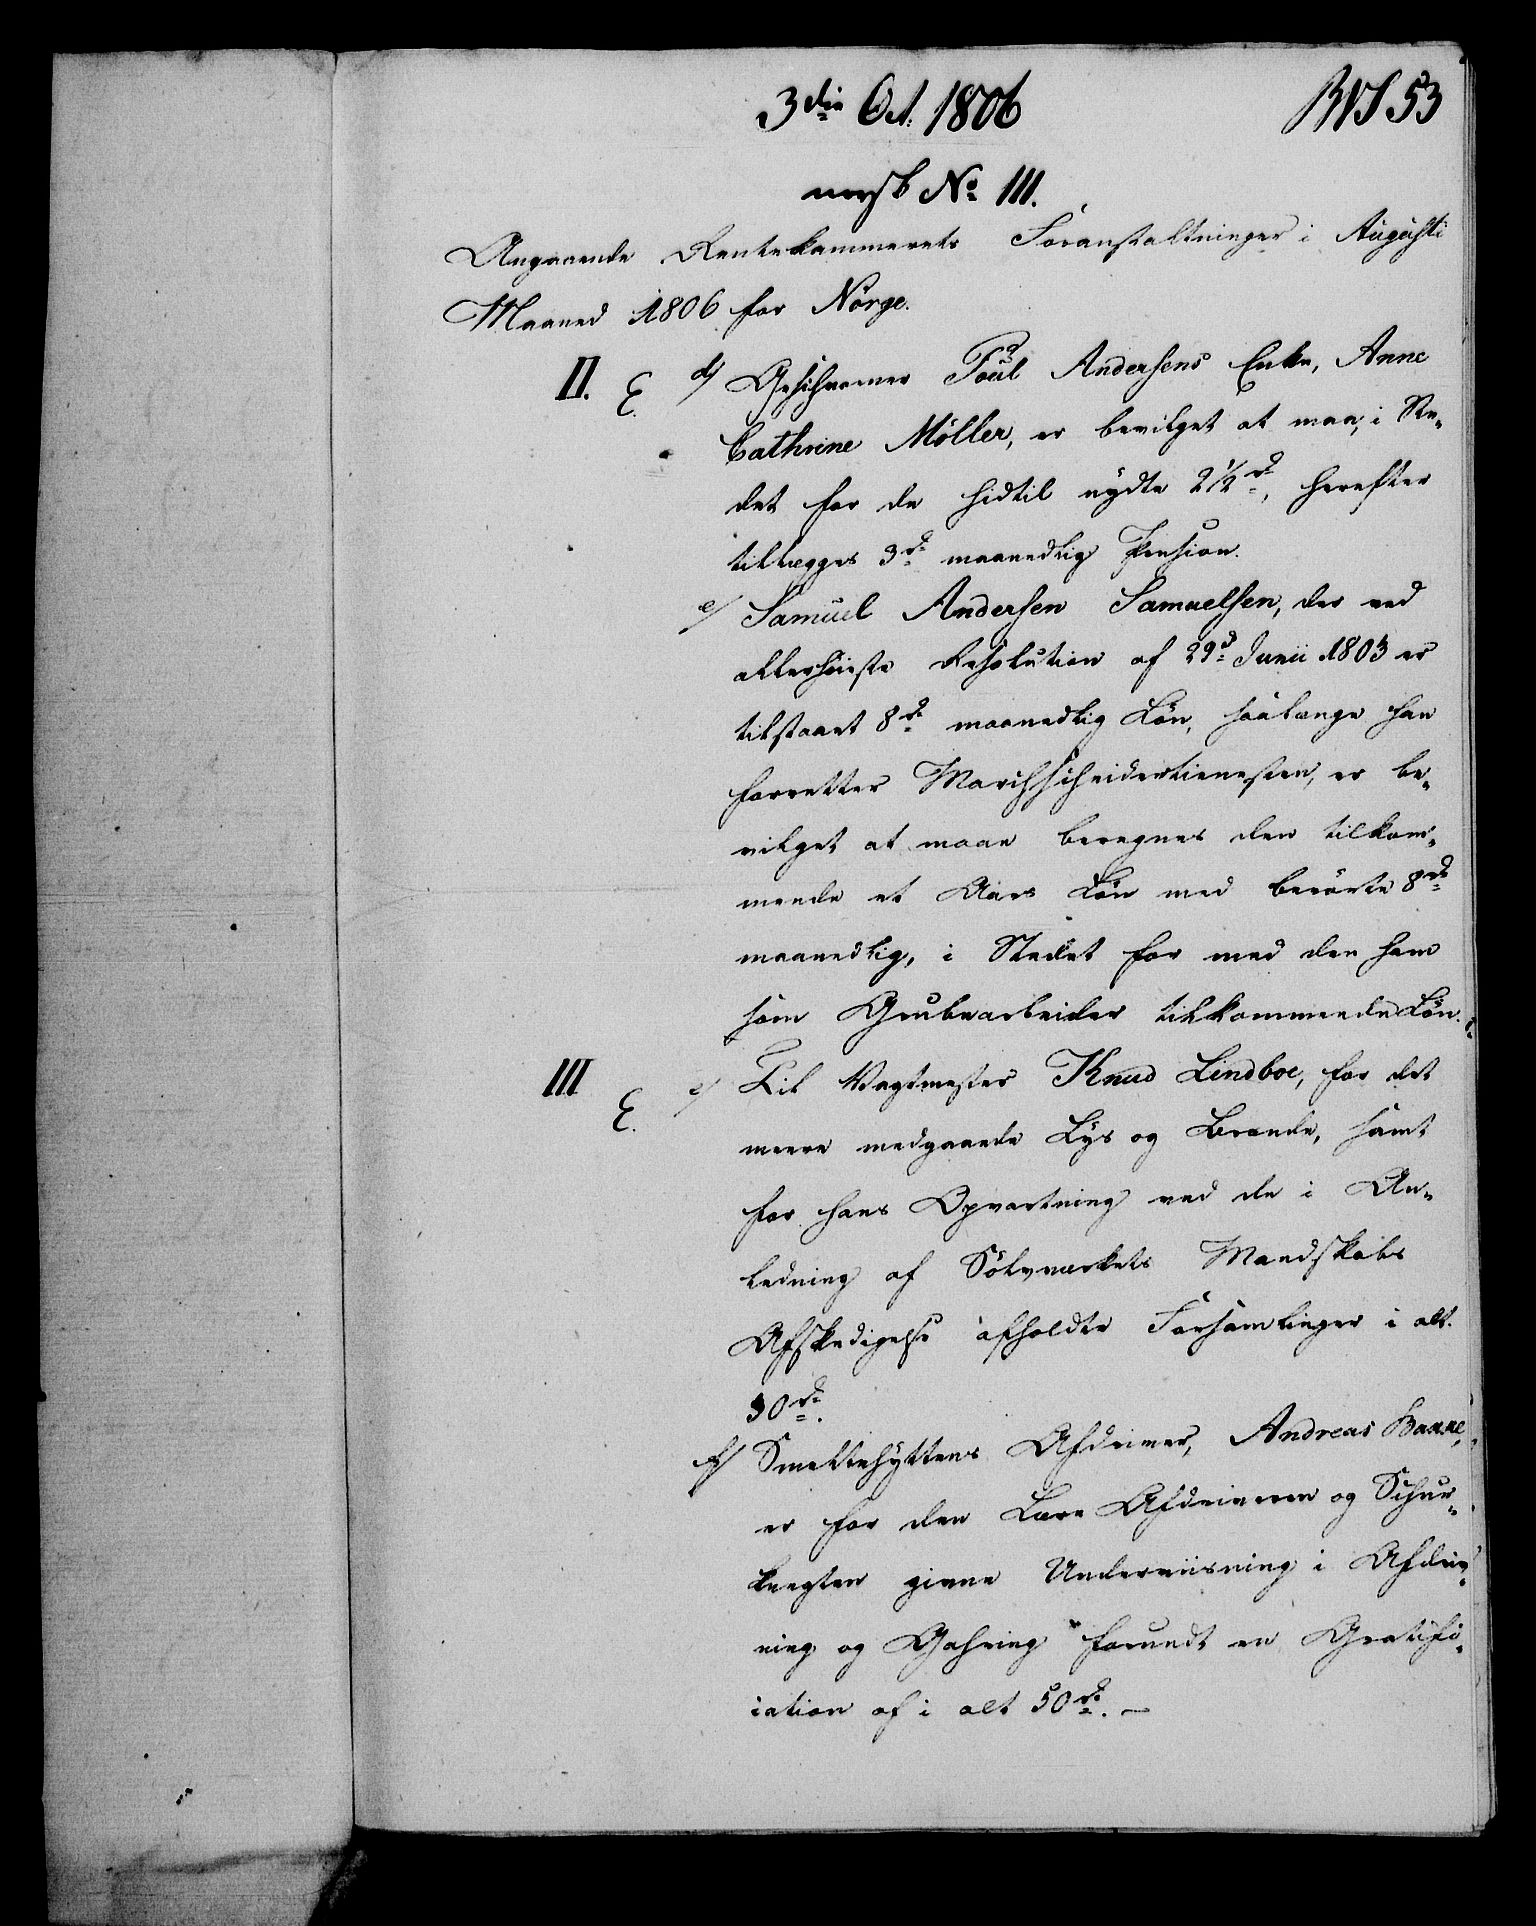 3die Oct. 1806
N 53
No III.
Angaaende Rentekammerets Foranstaltninger i Augusti
Maaned 1806 for Norge.
II. E. d/ Geschworner Poul Andersens Enke, Anne
Cathrine Møller, er bevilget at maa, i Ste-
det for de hidtil nydte 2½ rd, herefter
tillægges 3 rd maanedlig Pension.
e/ Samuel Andersen Samuelsen, der ved
allerhøieste Resolution af 29d Junii 1803 er
tilstaaet 8 rd maanedlig Løn, saalænge han
forretter Marchscheidertienesten, er be-
vilget at maae beregnes den tilkom-
mende et Aars Løn med berørte 8 rd
maanedlig, i Stedet for med den ham
som Grubearbeider tilkommende Løn.
III E. e/ Til Vagtmester Knud Lindboe, for det
meere medgaaede Lys og Brænde, samt
for hans Opvartning ved de i An-
ledning af Sølvværkets Mandskabs
Afskedigelse afholdte Forsamlinger i alt
30 rd.
f/ Smeltehyttens Afdriver, Andreas Baune,
er for den Lære Afdriveren og Schur-
knegten givne Underviisning i Afdriv-
ning og Gahring forundt en Gratifi-
cation af i alt 50 rd. —